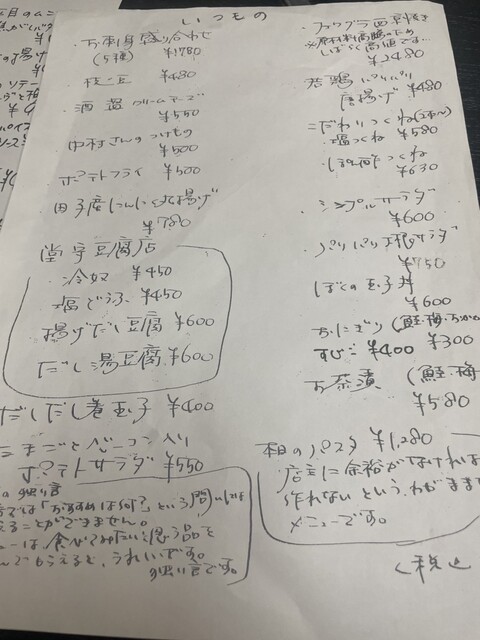 いつもの
・お刺身盛り合わせ
(5種) ¥1780
・枝豆 ¥480
・酒盗クリームチーズ
¥550
・中村さんのつけもの
¥500
・ポテトフライ ¥500
・田子産にんにく丸揚げ
¥780
豆腐店
冷奴 ¥450
塩どうふ ¥450
揚げだし豆腐 ¥600
だし湯豆腐 ¥600
だしだし巻玉子 ¥400
たまごとベーコン入り
ポテトサラダ ¥550
の独り言
では「おすすめは何?」という問いには
ことができません。
は、食べてみたいと思う品を
んでもらえると、うれしいです。
独り言です。
・フワグラ西京焼き
※原材料高騰のため
しばらく高値です…
¥2480
・若鶏パリパリ
唐揚げ ¥480
・こだわりつくね(2本〜)
・塩つくね ¥580
つくね
¥630
・シンプルサラダ
¥600
・パリパリ サラダ
¥750
・ぼくの玉子丼
¥600
・おにぎり(鮭・梅・おかか
すじこ ¥400 ¥300
・お茶漬 (鮭・梅
¥580
本日のパスタ ¥1,280
店主に余裕がなければ
作れないという、わがまま
メニューです。
税込